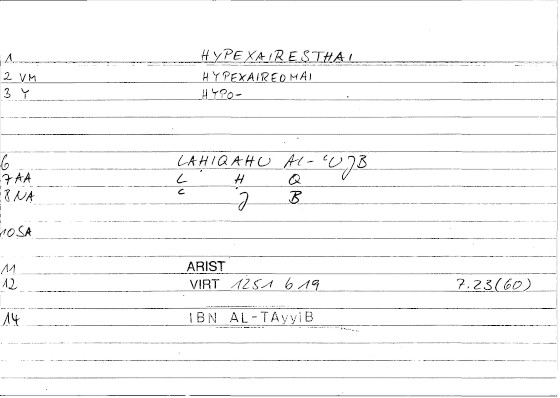 1 HYPEXAIRESTHAI
2 VM HYPEXAIREOMAI
3 Y HYPO-
6 LAHIQAHU AL-ʿUJB
7 AA L Ḥ Q
8 NA ʿ J B
10 SA
11 ARIST
12 VIRT 1251 b 19 7.23(60)
14 IBN AL-TAyyIB